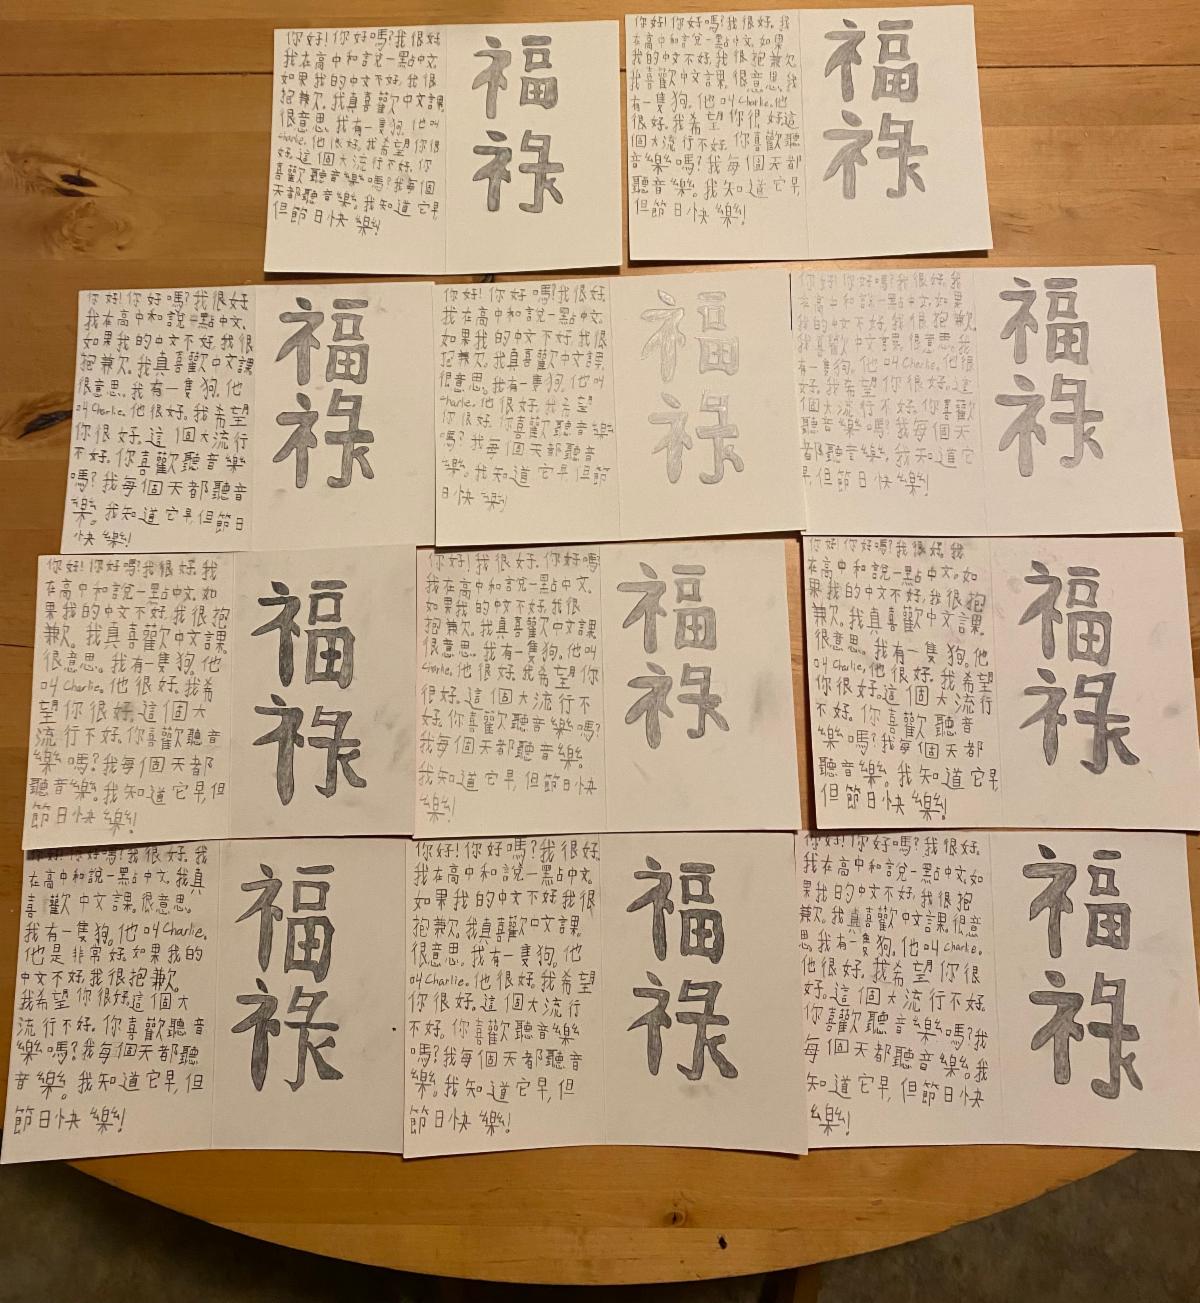 你好!你好嗎?我很好.
我在高中和說一點中文.
如果我的中文不好,我很
抱兼欠.我真喜歡中文課
很意思.我有一隻狗.他叫
Charlie.他很好.我希望你很
好.這個大流行不好.你
喜歡聽音樂嗎?我每個
天都聽音樂.我知道它早,
但節日快樂!
福
祿
你好!你好嗎?我很好.我
在高中和說一點中文.如果
我的中文不好.我很抱兼欠
我喜歡中文課.很意思.我
有一隻狗.他叫Charlie.他
很好.我希望你很好這
個大流行不好.你喜歡聽
音樂嗎?我每個天都
聽音樂.我知道它早,
但節日快樂!
福
祿
你好!你好嗎?我很好
我在高中和說一點中文.
如果我的中文不好,我很
抱兼欠.我真喜歡中文課
很意思.我有一隻狗.他
叫Charlie.他很好.我希望
你很好.這個大流行
不好.你喜歡聽音樂
嗎?我每個天都聽音
樂.我知道它早,但節日
快樂!
福
祿
你好!你好嗎?我很好.
我在高中和說一點中文.
如果我的中文不好,我很
抱兼欠.我真喜歡中文課.
很意思.我有一隻狗.他叫
Charlie.他很好.我希望
你很好.你喜歡聽音樂
嗎?我每個天都聽音
樂.我知道它早,但節
日快樂!
福
祿
你好!你好嗎?我很好.我
在高中和說一點中文.如果
我的中文不好.我很抱兼欠.
我喜歡中文課.很意思.我
有一隻狗.他叫Charlie.他很
好.我希望你很好.這
個大流行不好.你喜歡
聽音樂嗎?我每個天
都聽音樂.我知道它
早,但節日快樂!
福
祿
你好!你好嗎?我很好.我
在高中和說一點中文.如
果我的中文不好,我很抱
兼欠.我真喜歡中文課
很意思.我有一隻狗.他
叫Charlie.他很好.我希
望你很好.這個大
流行不好.你喜歡聽音
樂嗎?我每個天都
聽音樂.我知道它早,但
節日快樂!
福
祿
你好!我很好.你好嗎?
我在高中和說一點中文.
如果我的中文不好,我很
抱兼欠.我真喜歡中文課
很意思.我有一隻狗.他叫
Charlie.他很好.我希望你
很好.這個大流行不
好.你喜歡聽音樂嗎?
我每個天都聽音樂.
我知道它早,但節日快
樂!
福
祿
你好!你好嗎?我很好.我
在高中和說一點中文.如
果我的中文不好我很抱
兼欠.我真喜歡中文課.
很意思.我有一隻狗.他
叫Charlie,他很好.我希望
你很好.這個大流行
不好.你喜歡聽音
樂嗎?我每個天都
聽音樂.我知道它早
但節日快樂!
福
祿
你好!你好嗎?我很好.我
在高中和說一點中文.我真
喜歡中文課.很意思.
我有一隻狗.他叫Charlie.
他是非常好.如果我的
中文不好,我很抱兼欠.
我希望你很好.這個大
流行不好.你喜歡聽音
樂嗎?我每個天都聽
音樂.我知道它早,但
節日快樂!
福
祿
你好!你好嗎?我很好.
我在高中和說一點中文.
如果我的中文不好我很
抱兼欠.我真喜歡中文課.
很意思.我有一隻狗.他
叫Charlie.他很好.我希望
你很好.這個大流行
不好.你喜歡聽音樂
嗎?我每個天都聽音
樂.我知道它早,但
節日快樂!
福
祿
你好!你好嗎?我很好.
我在高中和說一點中文.如
果我的中文不好,我很抱
兼欠.我真喜歡中文課很意
思.我有一隻狗.他叫Charlie.
他很好.我希望你很
好.這個大流行不好.
你喜歡聽音樂嗎?我
每個天都聽音樂.我
知道它早,但節日快
樂!
福
祿